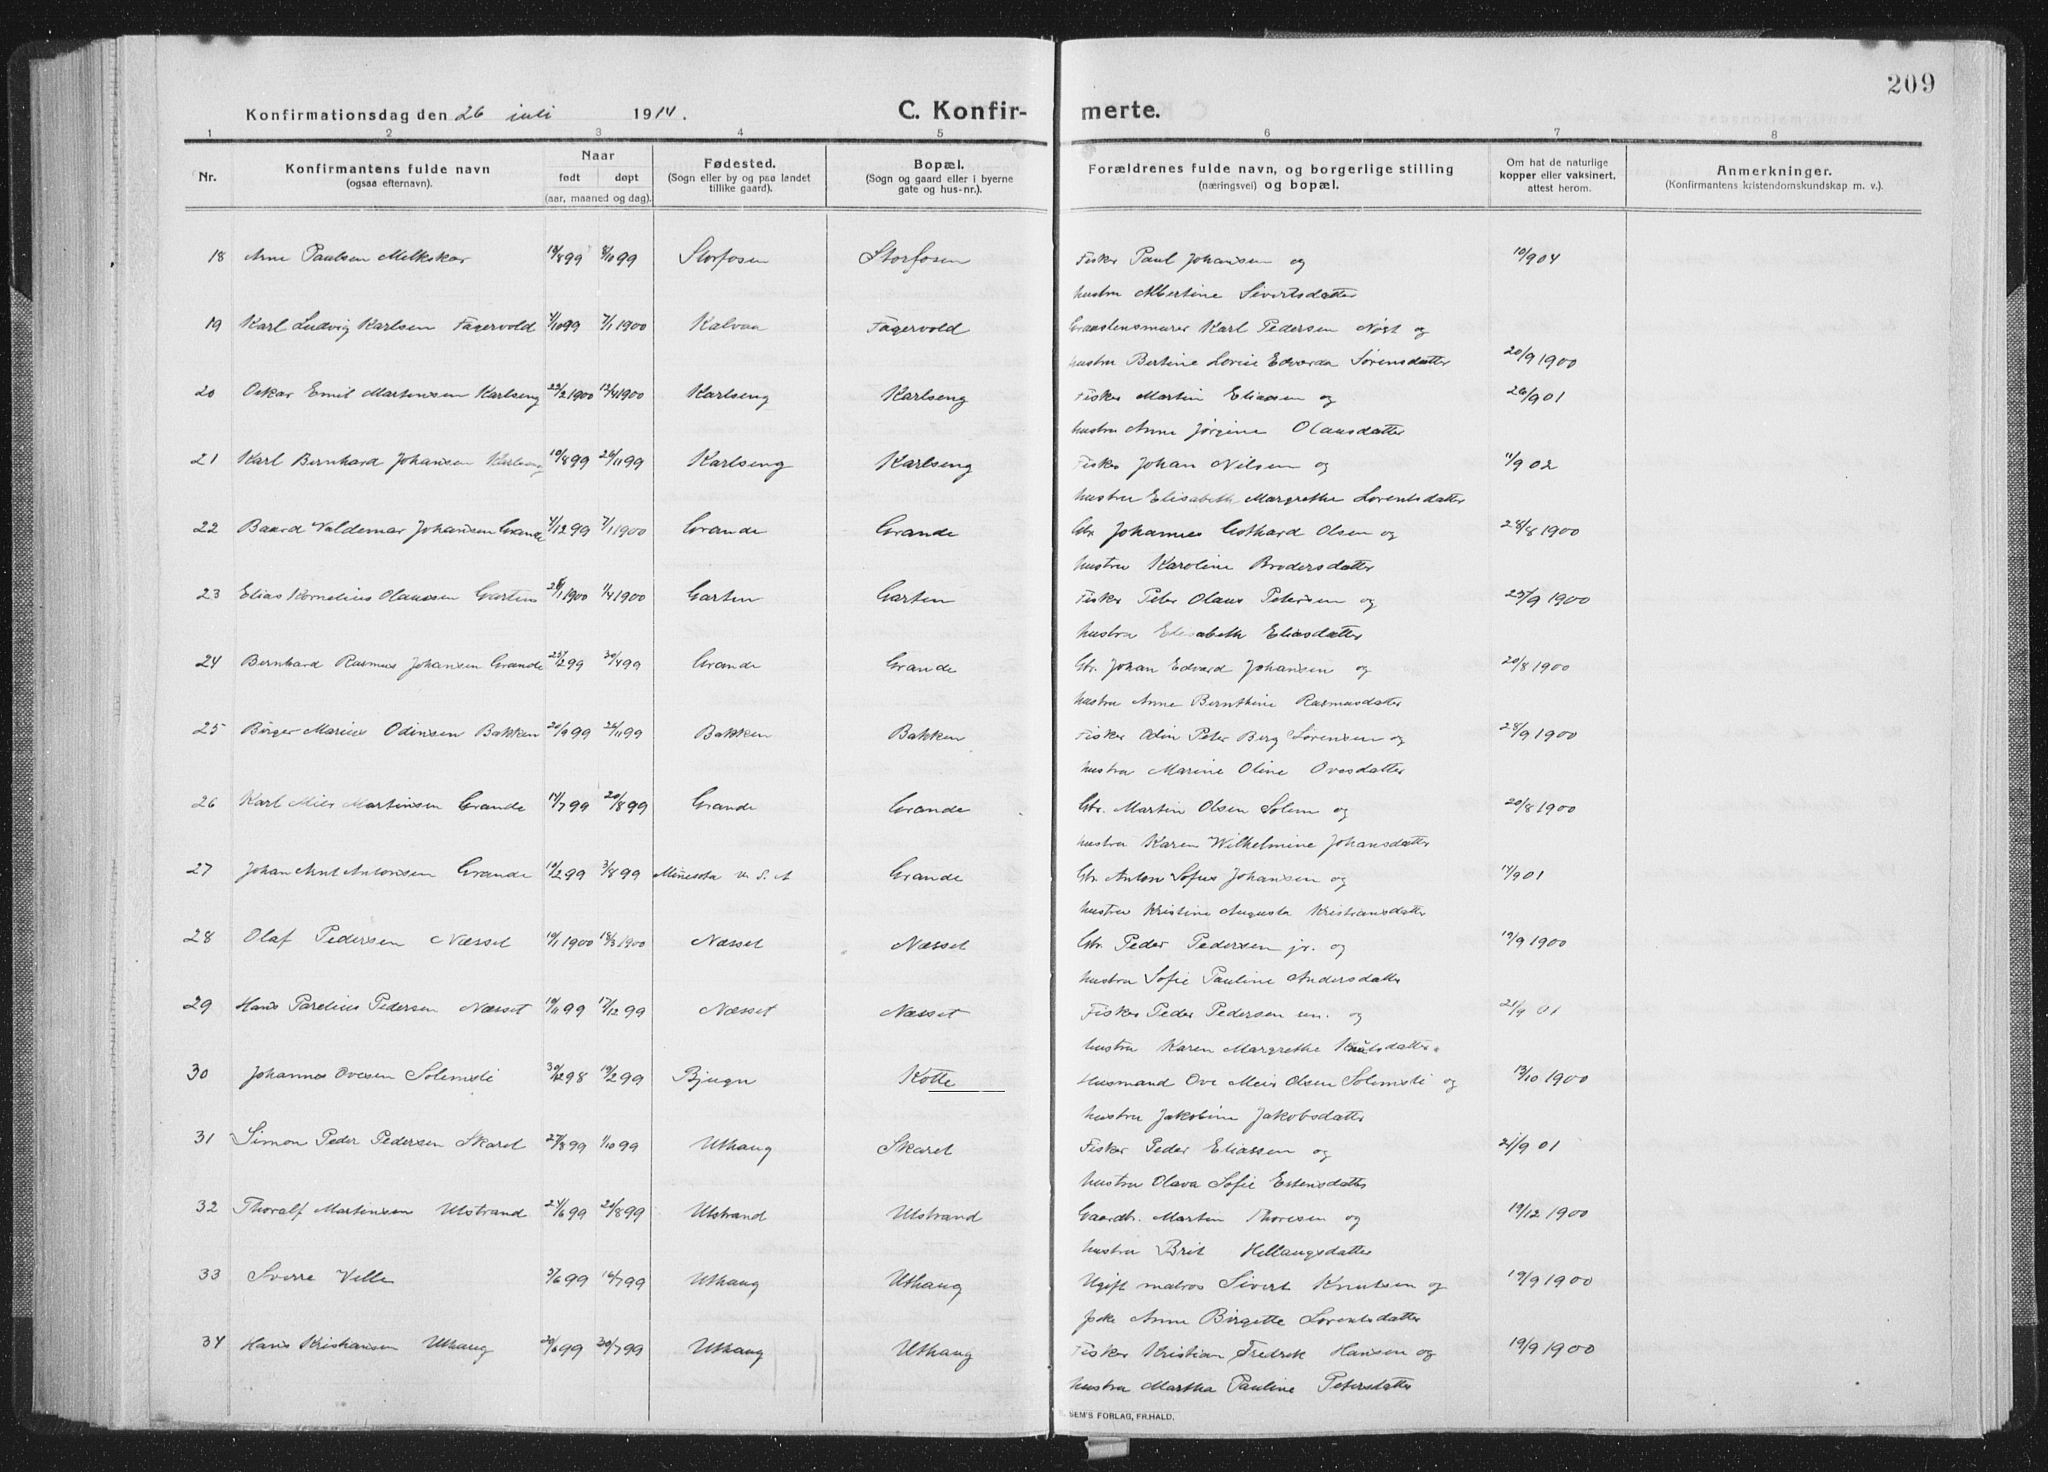 209
Konfirmationsdag den 26 juli 1914. C. Konfir- merte.
1 2 3 4 5 6 7 8
Nr. Konfirmantens fulde navn (ogsaa efternavn). Naar født døpt (aar, maaned og dag). Fødested. (Sogn eller by og paa landet tillike gaard). Bopæl. (Sogn og gaard eller i byerne gate og hus-nr.). Forældrenes fulde navn, og borgerlige stilling (næringsvei) og bopæl. Om hat de naturlige kopper eller vaksinert, attest herom. Anmerkninger. (Konfirmantens kristendomskundskap m. v.).
18 Arne Paulsen Melkskar 18/8 99 8/10 99 Storfosen Storfosen Fisker Paul Johansen og 10/9 04
hustru Albertine Sivertsdatter
19 Karl Ludvig Karlsen Fagervold 4/10 99 7/1 1900 Kalvaa Fagervold Graastensmurer Karl Pedersen Nøst og
hustru Bertine Lovise Edvarda Sørensdatter 20/9 1900
20 Oskar Emil Martinsen Karlseng 22/2 1900 12/4 1900 Karlseng Karlseng Fisker Martin Eliassen og 26/9 01
hustru Anne Jørgine Olausdatter
21 Karl Bernhard Johansen Karlseng 10/8 99 26/11 99 Karlseng Karlseng Fisker Johan Nilsen og 11/9 02
hustru Elisabeth Margrethe Lorentsdatter
22 Baard Valdemar Johansen Grande 4/12 99 7/1 1900 Grande Grande Gbr. Johannes Gothard Olsen og 28/8 1900
hustru Karoline Brodersdatter
23 Elias Kornelius Olaussen Garten /1 1900 1/4 1900 Garten Garten Fisker Peter Olaus Petersen og 25/9 1900
hustru Elisabeth Eliasdatter
24 Bernhard Rasmus Johansen Grande 25/2 99 30/4 99 Grande Grande Gbr. Johan Edvard Johansen og 20/8 1900
hustru Anne Bernthine Rasmusdatter
25 Birger Marius Odinsen Bakken 20/9 99 26/11 99 Bakken Bakken Fisker Odin Peter Berg Sørensen og 28/9 1900
hustru Marine Oline Ovesdatter
26 Karl Miers Martinsen Grande 14/7 99 20/8 99 Grande Grande Gbr. Martin Olsen Solem og 20/8 1900
hustru Karen Wilhelmine Johansdatter
27 Johan Arnt Antonsen Grande 10/2 99 3/8 99 Minesota U. S. A Grande Gbr. Anton Sofus Johansen og 14/9 01
hustru Kristine Augusta Kristiansdatter
28 Olaf Pedersen Næsset 10/1 1900 18/3 1900 Næsset Næsset Gbr. Peder Pedersen jr. og 19/9 1900
hustru Sofie Pauline Andersdatter
29 Hans Parelius Pedersen Næsset 10/11 99 17/12 99 Næsset Næsset Fisker Peder Pedersen un. og 21/9 01
hustru Karen Margrethe Knutsdatter
30 Johannes Ovesen Solemsli 30/12 98 19/2 99 Bjugn Kotte Husmand Ove Meier Olsen Solemsli og 13/10 1900
hustru Jakobine Jakobsdatter
31 Simon Peder Pedersen Skaret 27/8 99 1/10 99 Uthaug Skaret Fisker Peder Eliassen og 21/9 01
hustru Olava Sofie Estensdatter
32 Thoralf Martinsen Utstrand 24/6 99 20/8 99 Utstrand Utstrand Gaardbr. Martin Thoresen og 19/12 1900
hustru Brit Hellaugsdatter
33 Sverre Velle 3/6 99 16/7 99 Uthaug Uthaug Ugift matros Sivert Knutsen og 19/9 1900
pike Anne Birgitte Lorentsdatter
34 Hans Kristiansen Uthaug 20/6 99 30/7 99 Uthaug Uthaug Fisker Kristian Fredrik Hansen og 19/9 1900
hustru Martha Pauline Petersdatter
SEM'S FORLAG, FR.HALD.